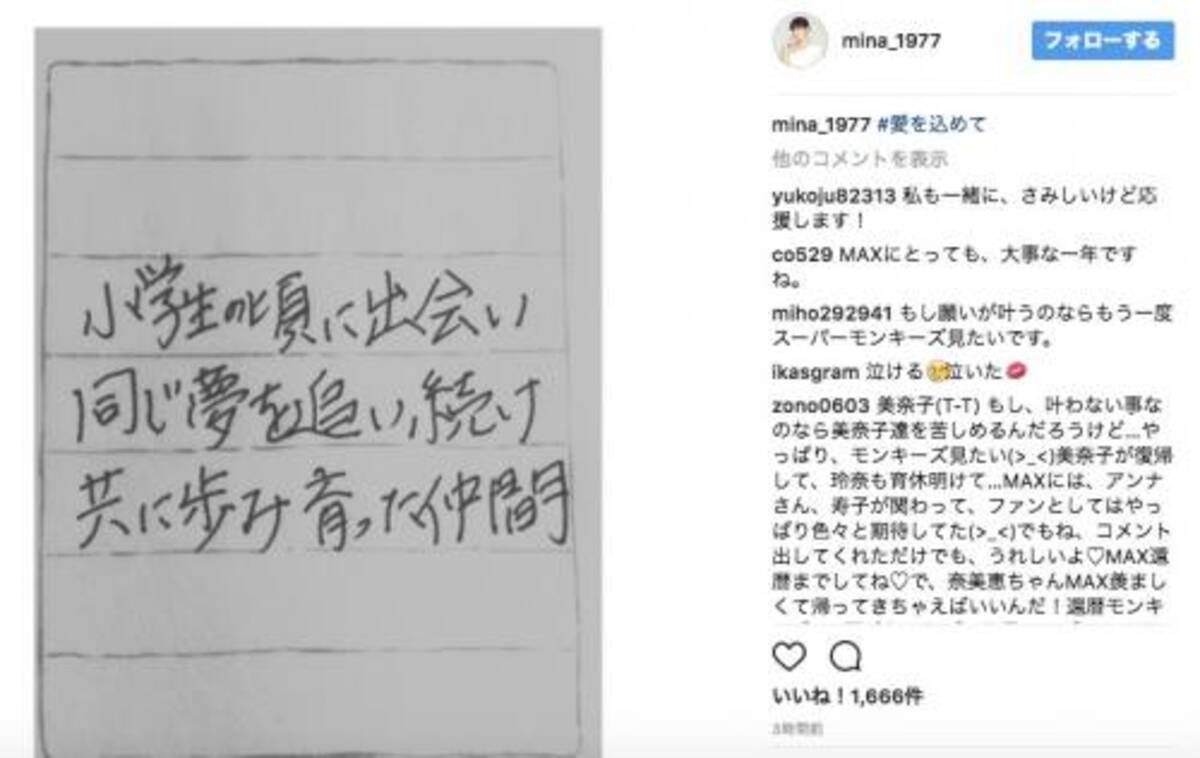 小学生の頃に出会い
同じ夢を追い続け
共に歩み育った仲間
mina_1977
フォローする
mina_1977 #愛を込めて
他のコメントを表示
yukoju82313 私も一緒に、さみしいけど応
援します！
co529 MAXにとっても、大事な一年です
ね。
miho292941 もし願いが叶うのならもう一度
スーパーモンキーズ見たいです。
ikasgram 泣ける😢泣いた💋
zono0603 美奈子(T-T) もし、叶わない事な
のなら美奈子達を苦しめるんだろうけど...や
っぱり、モンキーズ見たい(>_<)美奈子が復帰
して、玲奈も育休明けて...MAXには、アンナ
さん、寿子が関わって、ファンとしてはやっ
ぱり色々と期待してた(>_<)でもね、コメント
出してくれただけでも、うれしいよ♡MAX還
暦までしてね♡で、奈美恵ちゃんMAX羨まし
くて帰ってきちゃえばいいんだ！還暦モンキ
いいね！1,666件